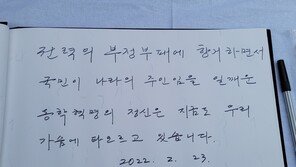 권력의 부정부패에 항거하면서
국민이 나라의 주인임을 일깨운
동학혁명의 정신은 지금도 우리
가슴에 타오르고 있습니다.
2022. 2. 23.